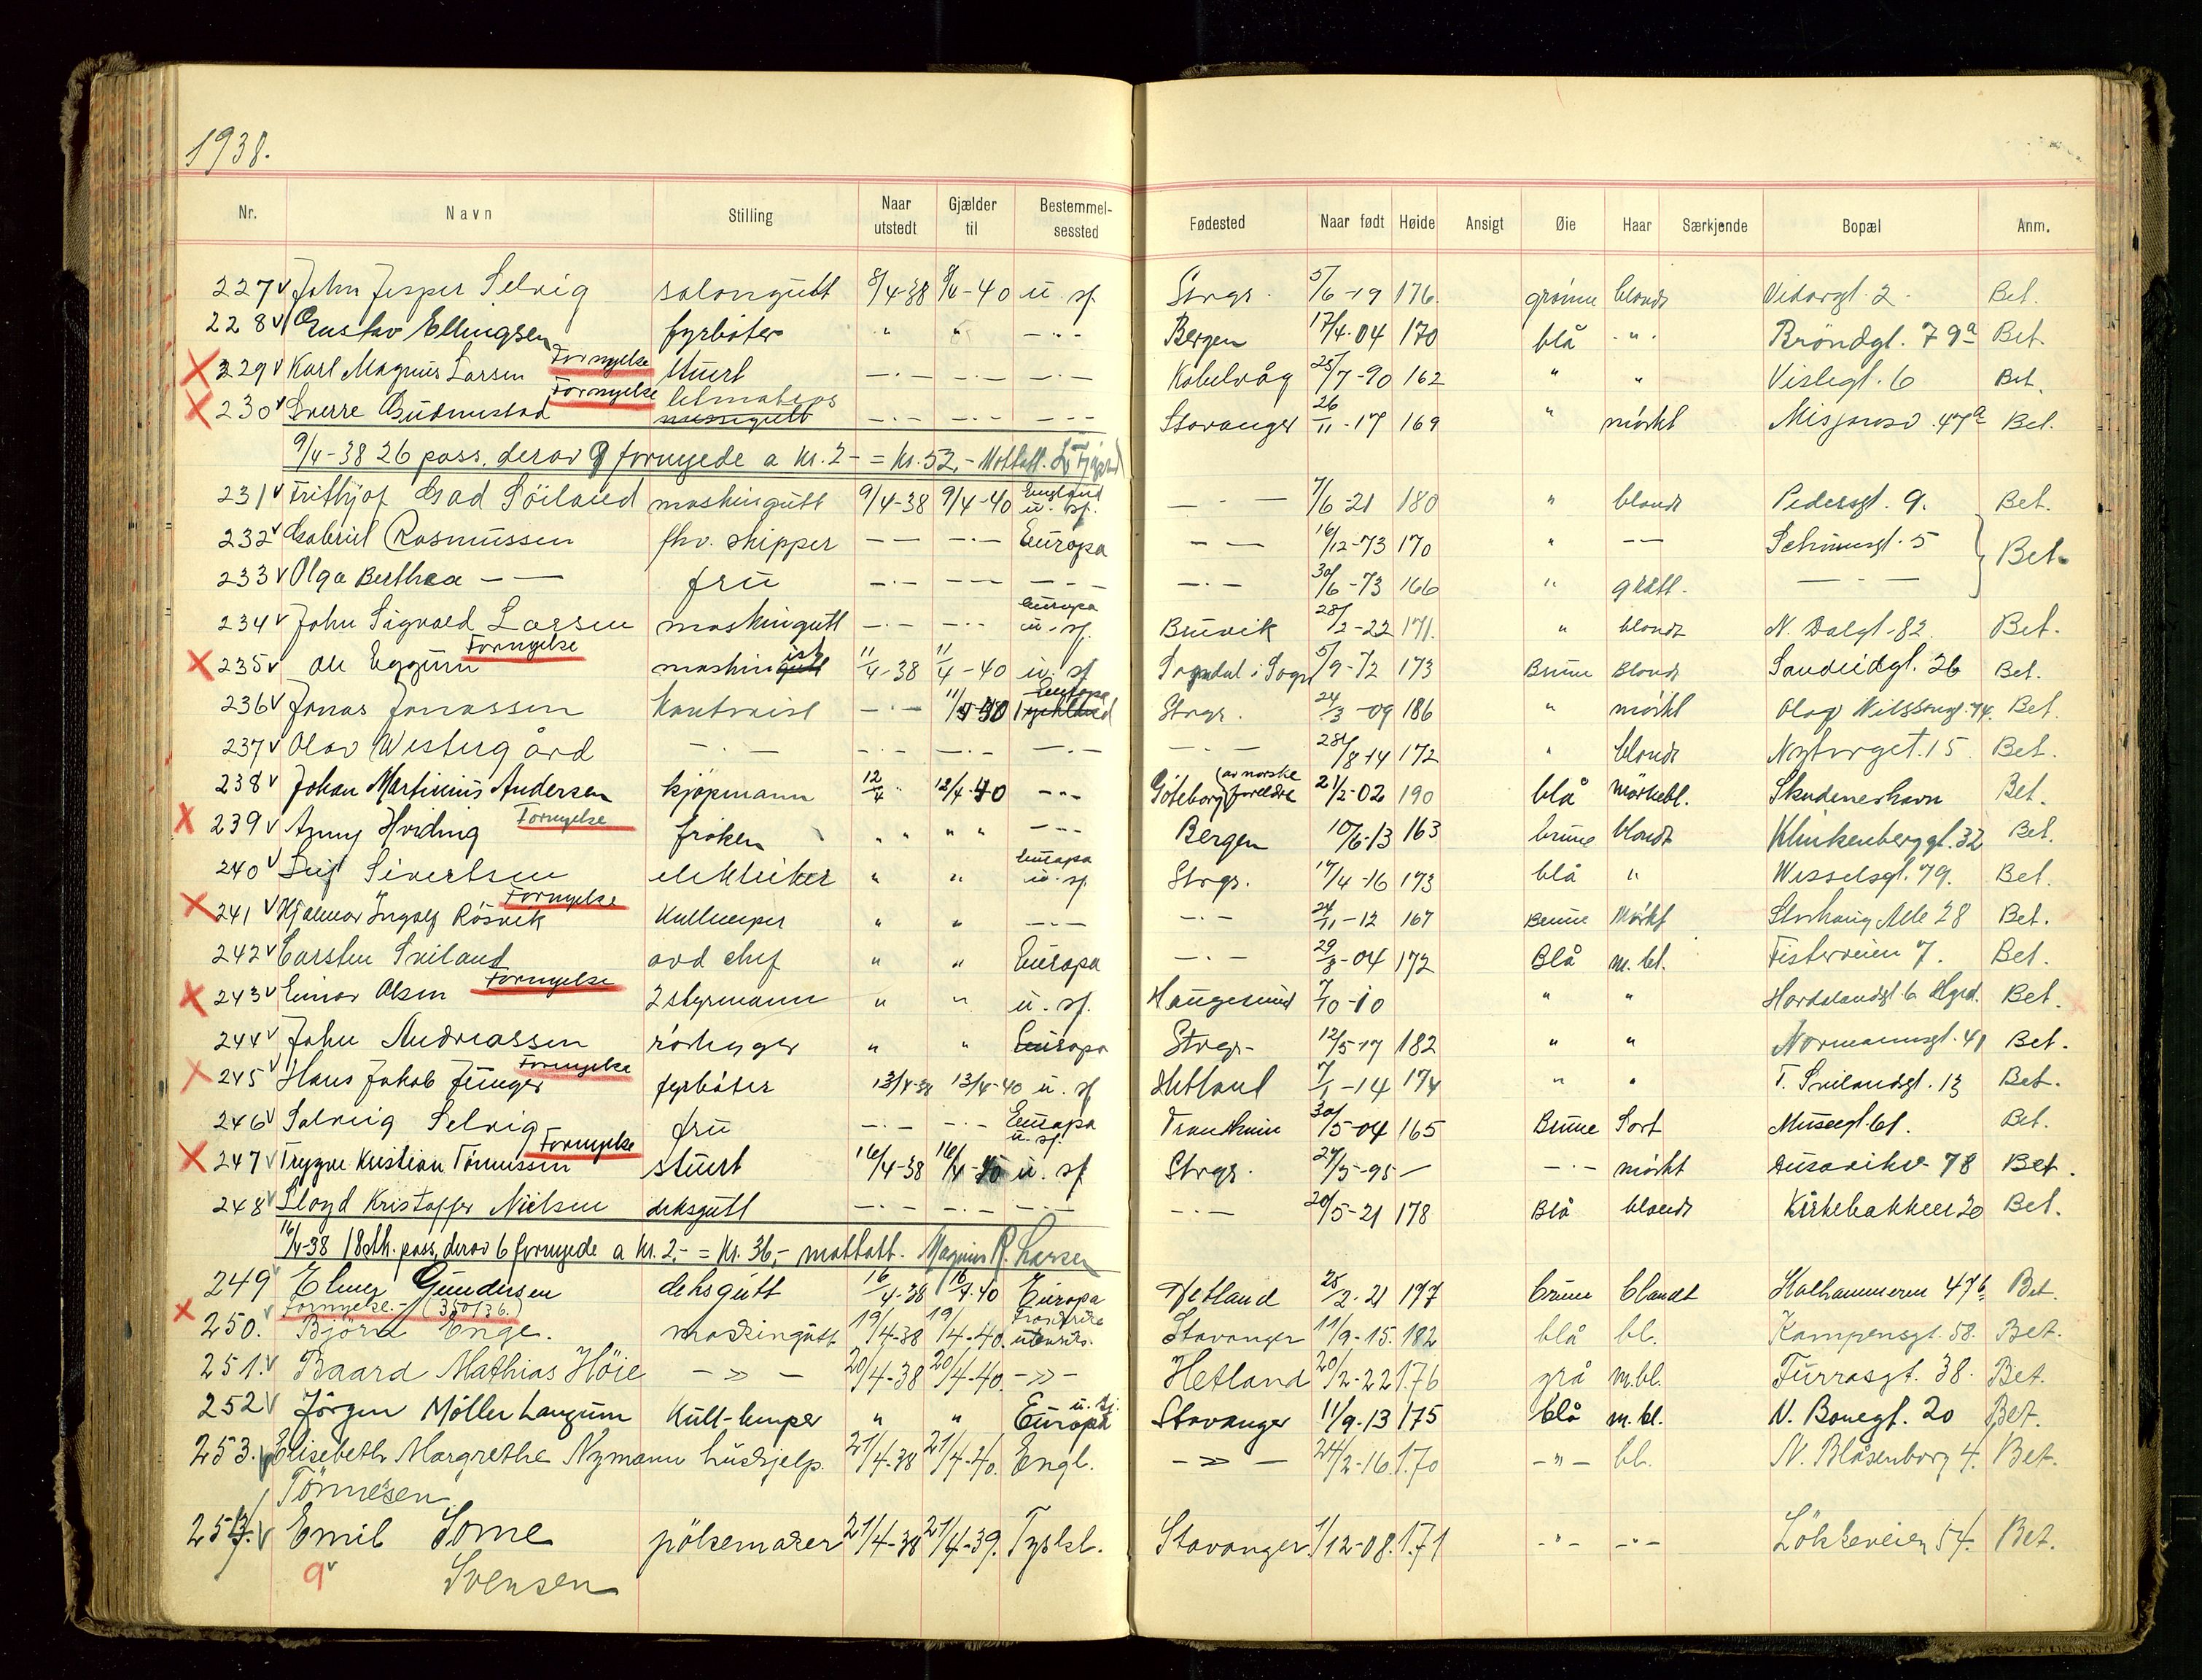 1938.
Nr. Navn Stilling Naar utstedt Gjælder til Bestemmelsessted Fødested Naar født Høide Ansigt Øie Haar Særkjende Bopæl Anm.
227 v John Jesper Selvig salongutt 8/4-38 8/4-40 u. sj. Stvgr. 5/6-19 176. grønne blondt Vidargt. 2. Bet.
228 v Gustav Ellingsen fyrbøter " " — " — Bergen 17/4-04 170 blå " Brøndgt. 79a Bet.
X 229 v Karl Magnus Larsen Fornyelse stuert — " — — " — — " — Kabelvåg 25/7-90 162 " " Vistegt. 6 Bet.
X 230 v Sverre Gudmestad Fornyelse messegutt — " — — " — — " — Stavanger 26/11-17 169 " mørkt Misjonsv. 47a Bet.
9/4-38 26 pass, derav 9 fornyede a kr. 2- = kr. 52,- Mottatt.
231 v Frithjof Gad Söiland maskingutt 9/4-38 9/4-40 England u. sj. — " — 7/6-21 180 " blondt Pedersgt. 9. Bet.
232 v Gabriel Rasmussen fhv. skipper — " — — " — Europa — " — 16/12-73 170 " — " — 5 Bet.
233 v Olga Berthea — " — frü — " — — " — — " — — " — 30/6-73 166 " grått. — " —
234 v John Sigvald Larsen maskingutt — " — — " — Europa u. sj. Bruvik 28/2-22 171. " blondt N. Dalgt. 82. Bet.
X 235 v Ole Eggum Fornyelse maskingutt ist 11/4-38 11/4-40 u. sj Sogndal i Sogn 5/9-72 173 Brune Blondt Sandeidgt. 26 Bet.
236 v Jonas Jonassen Kontorist — " — 11/4-40 Europa Tyskland Stvgr. 24/3-09 186 " mørkt Olav Nilssonsgt. 74. Bet.
237 v Olav Westergård — " — — " — — " — — " — — " — 28/8-14 172 " blondt Nytorget. 15 Bet.
238 v Johan Martinius Andersen kjøpmann 12/4 " 12/4-40 — " — Göteborg (av norske foreldre 21/2-02 190 blå mørkebl. Skudeneshavn Bet.
X 239 v Anny Hviding Fornyelse frøken " " " " — " — Bergen 10/6-13 163 brune blondt Klinkenberggt. 32 Bet.
240 v Leif Sivertsen elektriker " " Europa u. sj. Stvgr. 17/4-16 173 blå " Wesselsgt. 79. Bet.
X 241 v Hjalmar Ingolf Røsvik Fornyelse Kullemper " " — " — — " — 24/11-12 167 Brune Mørkt Storhaug Alle 28 Bet.
242 v Carsten Sviland avd chef " " Europa — " — 29/8-04 172 Blå m. bl. Fisterveien 7. Bet.
X 243 v Einar Olsen Fornyelse 2 styrmann " " u. sj. Haugesund 7/10-10 " " Hordalandsgt. 6 Hgsd. Bet.
244 v John Andreassen rørlegger " " Europa Stvgr. 12/5-17 182 " " Normannsgt. 41 Bet.
X 245 v Hans Jakob Junger Fornyelse fyrbøter 13/4-38 13/4-40 u. sj Hetland 7/1-14 174 " " T. Svilandsgt. 13 Bet.
246 v Solveig Selvig frü — " — — " — Europa u. sj. Trondheim 30/5-04 165 Brune Sort Museegt. 61. Bet.
X 247 v Trygve Kristian Tönnessen Fornyelse stuert 16/4-38 16/4-40 u. sj Stvgr. 27/3-95 — — " — mørkt Dusavikv. 78 Bet.
248 v Lloyd Kristoffer Nielsen deksgutt — " — — " — — " — — " — 20/5-21 178 Blå blondt Kirkebakken 20 Bet.
16/4-38 18 stk. pass, derav 6 fornyede a kr. 2,- = kr. 36,- mottatt. Magnus R. Larsen
249 v Elmer Gundersen deksgutt 16/4-38 16/4-40 Europa Hetland 25/2-21 177 brune blondt Kalhammeren 47b Bet.
X 250. v Fornyelse.- (350/36.) Björn Enge. maskingutt 19/4-38 19/4-40. Frankrike utenriks. Stavanger 11/9-15. 182 blå bl. Kampensgt. 58. Bet.
251. v Baard Mathias Höie — » — 20/4-38 20/4-40. — » — Hetland 20/2-22 1.76 grå m.bl. Furrasgt. 38. Bet.
252 v Jörgen Möller Langum Kull-lemper " " Europa u. sj. Stavanger 11/9-13 175 blå m. bl. N. Banegt. 20 Bet.
253. v Elisebeth Margrethe Nymann Tönnesen hushjelp. 21/4-38 21/4-40. Engl. — » — 24/2-16. 1.70 — " — bl. N. Blåsenborg 4. Bet.
254. v Emil Lorne Svensen pölsemaker 21/4-38 21/4-39. Tyskl. Stavanger. 1/12-08. 1.71 — " — — " — Lökkeveien 54. Bet.
9 v